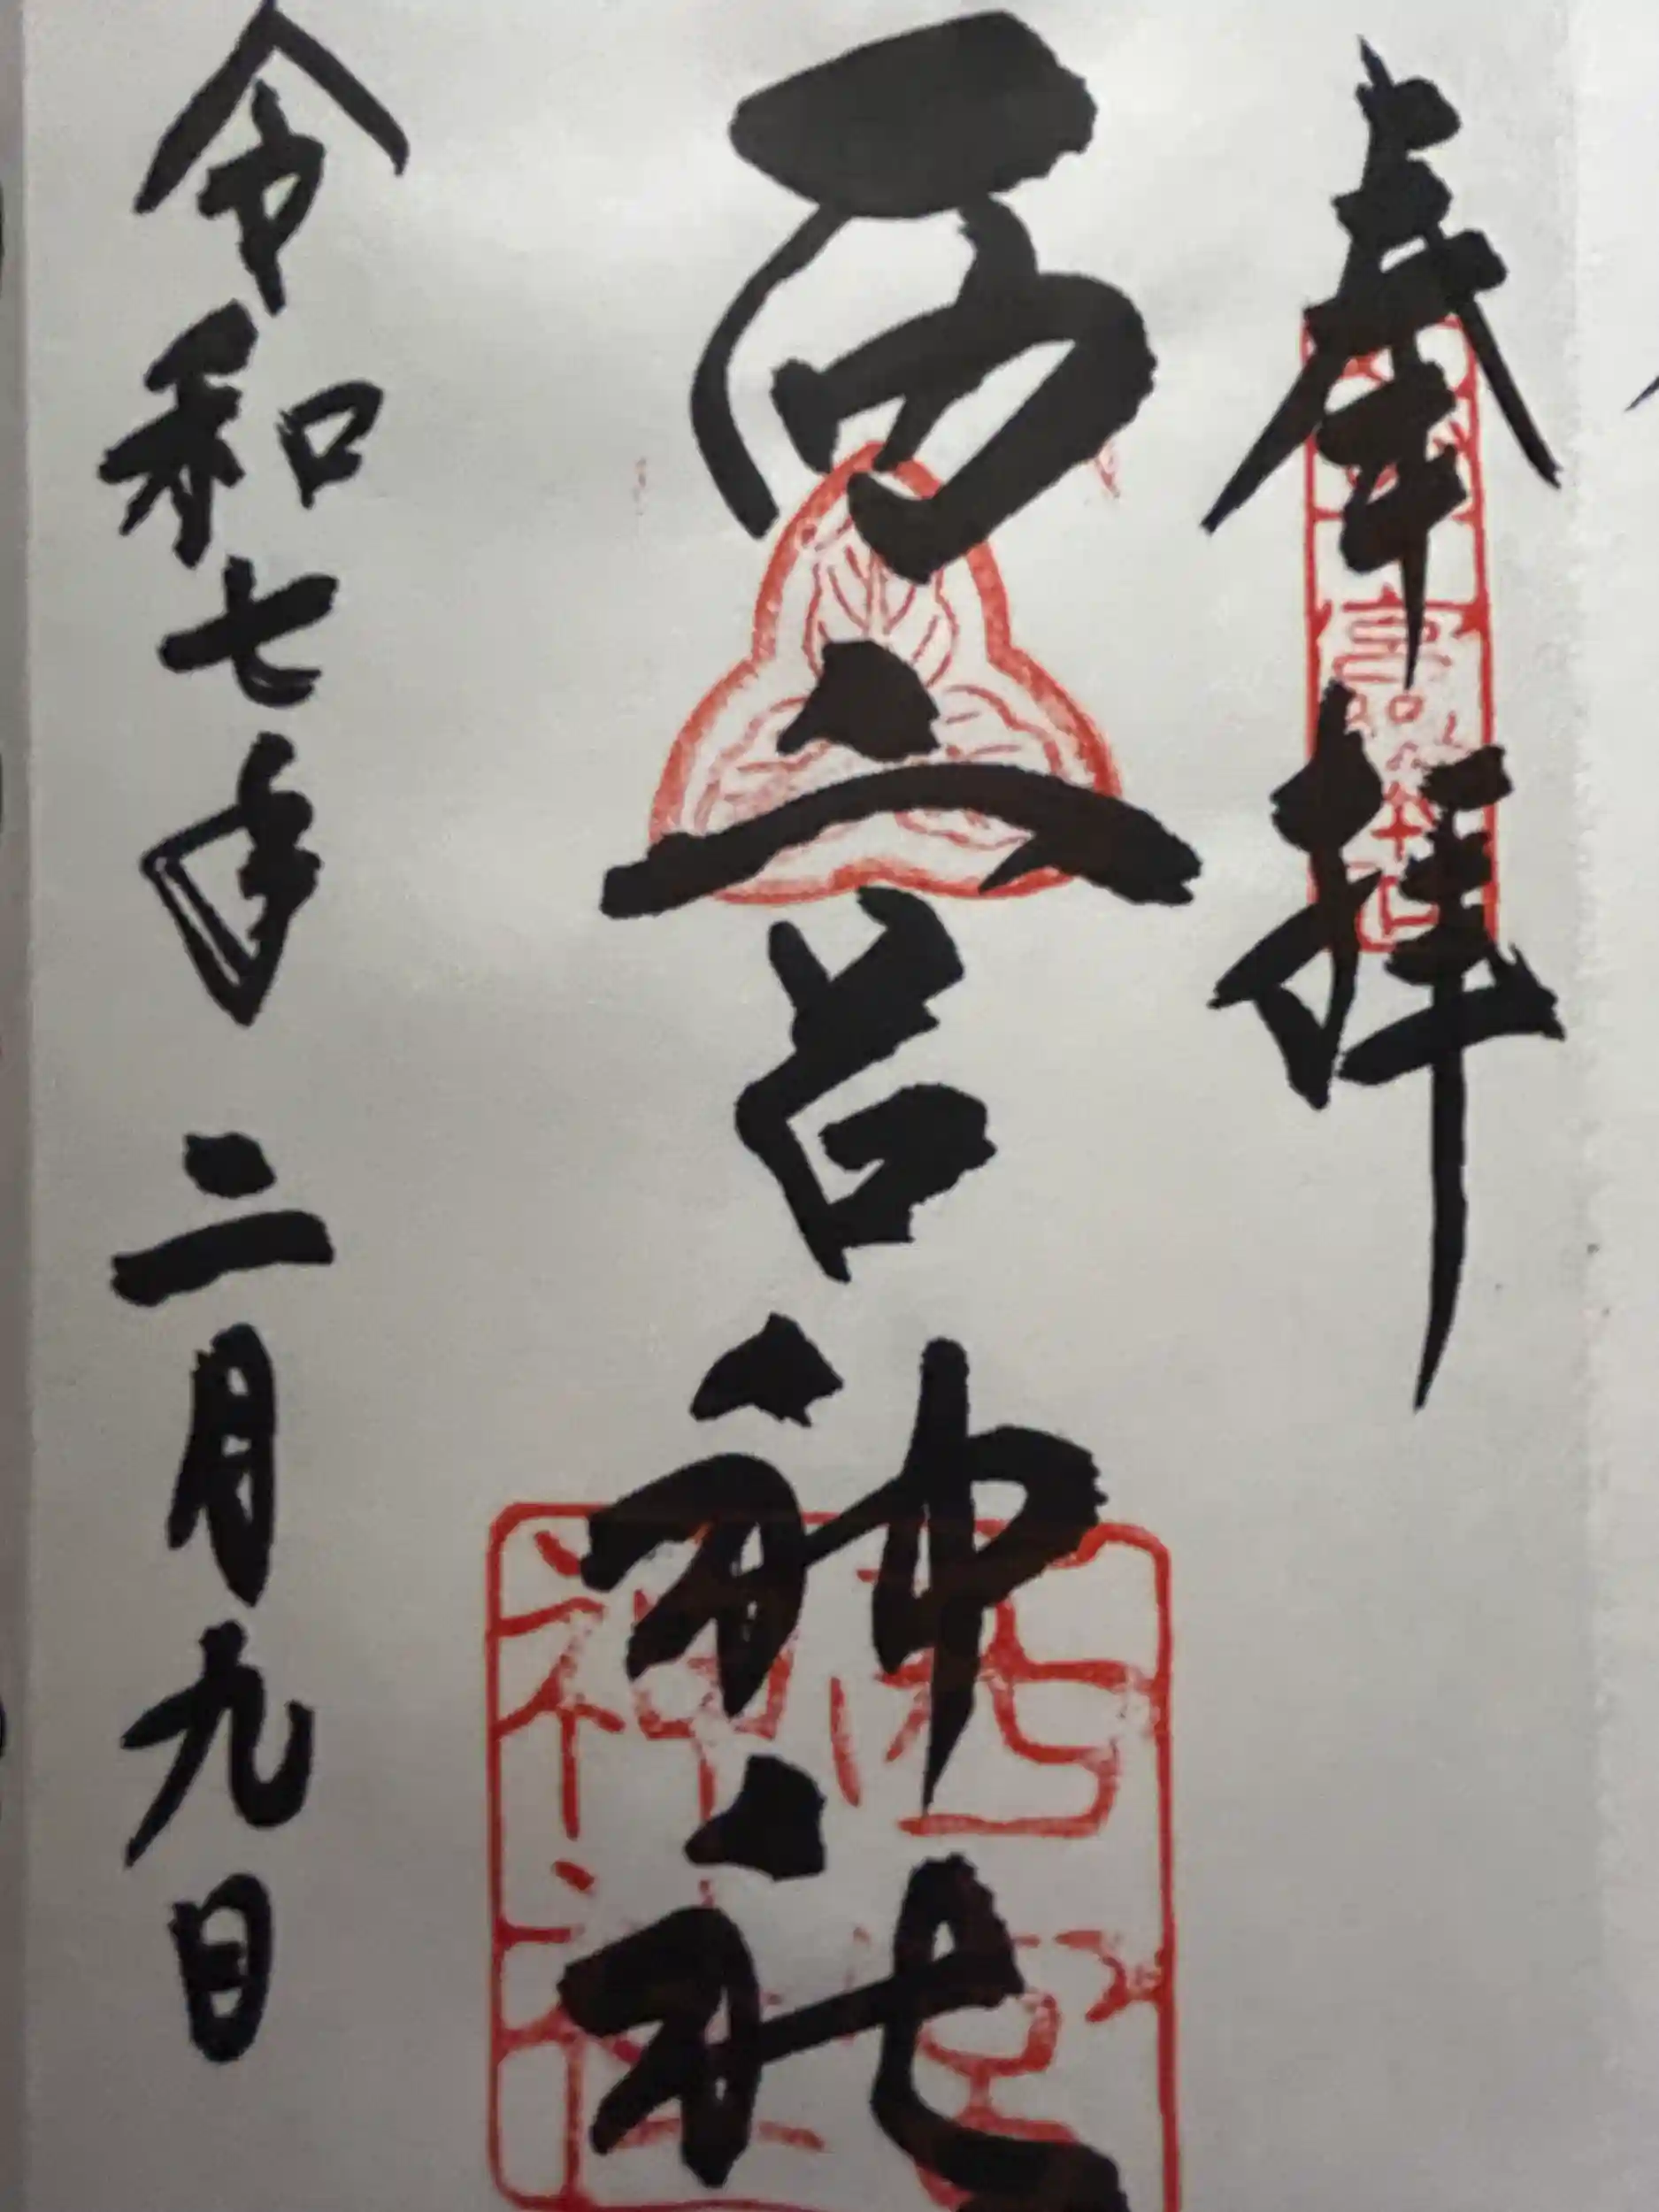 奉拝
西宮神社
令和七年 二月九日